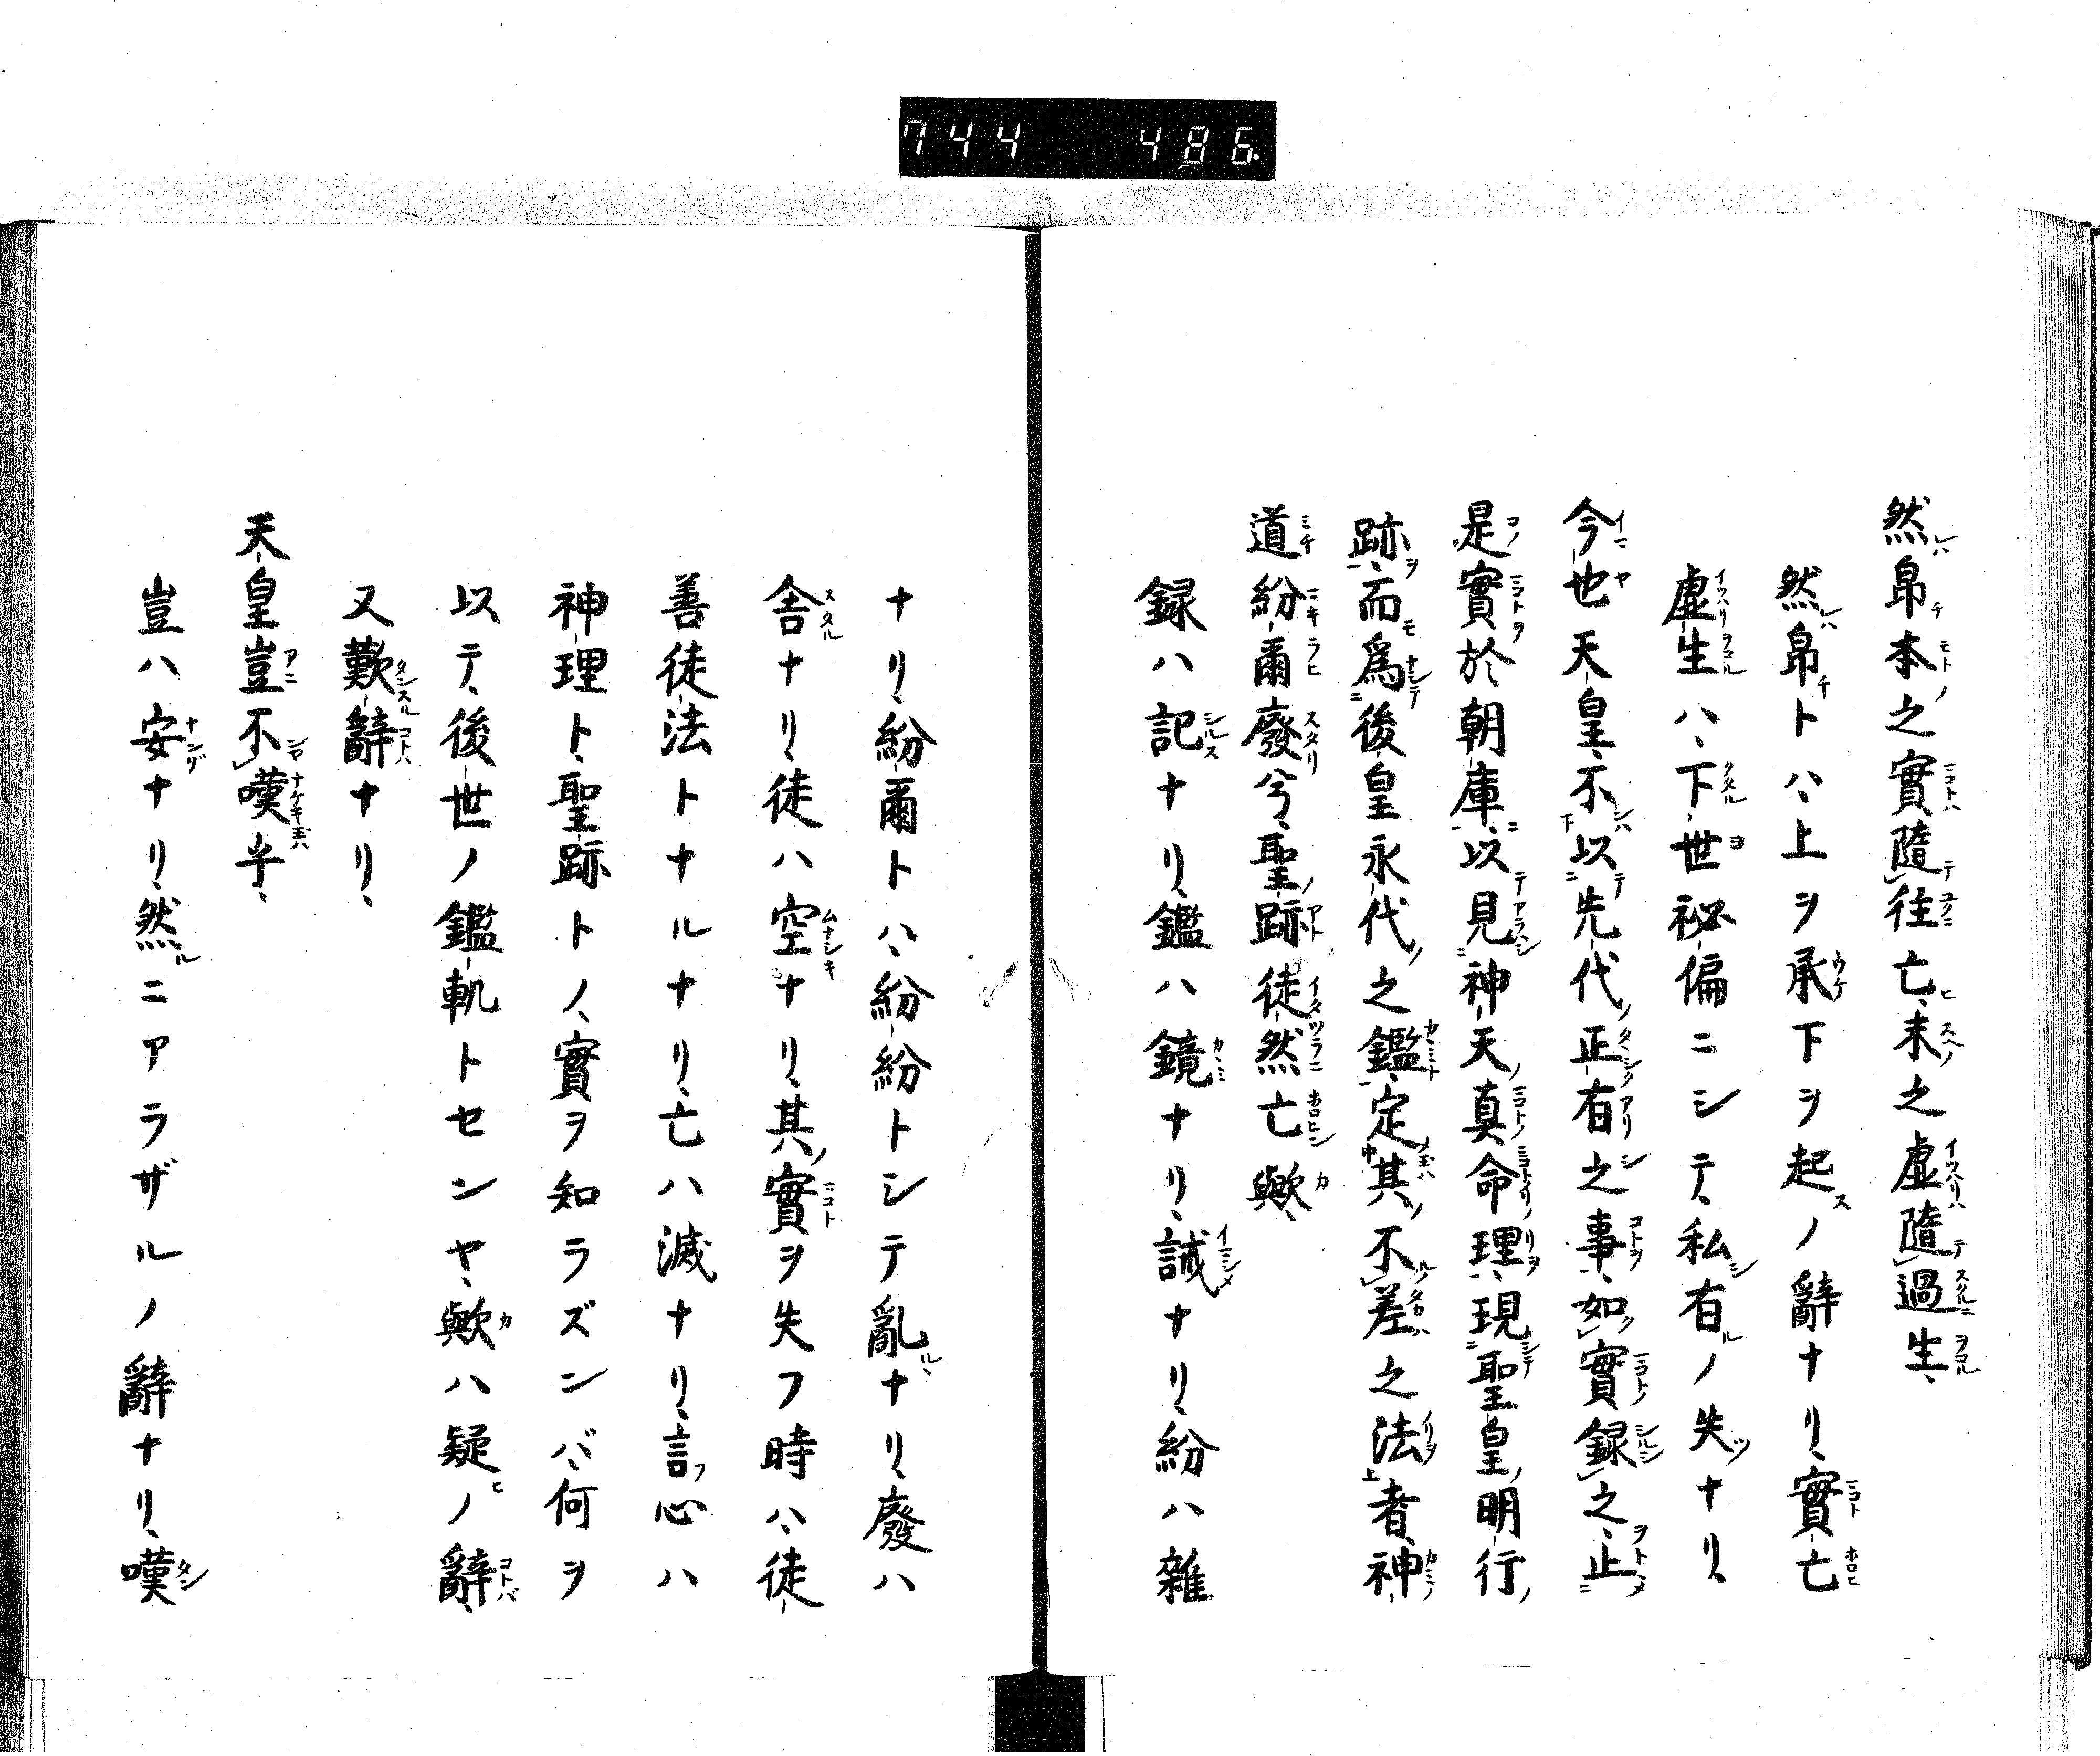 744 486
然帛本之實隨往亡、末之虛隨過生、
然帛トハ、上ヲ承下ヲ起ノ辭ナリ、實亡
虛生ハ、下世祕偏ニシテ、私有ノ失ナリ、
今也天皇、不以先代正有之事、如實録之、止
是實於朝庫、以見神天真命理、現聖皇明行
跡、而爲後皇永代之鑑、定其不差之法者、神
道紛爾廢兮、聖跡徒然亡歟、
録ハ記ナリ、鑑ハ鏡ナリ、誡ナリ、紛ハ雜
ナリ、紛爾トハ、紛紛トシテ亂ナリ、廢ハ
舎ナリ、徒ハ空ナリ、其實ヲ失フ時ハ、徒
善徒法トナルナリ、亡ハ滅ナリ、言心ハ
神理ト、聖跡トノ、實ヲ知ラズンバ、何ヲ
以テ、後世ノ鑑軌トセンヤ、歟ハ疑ノ辭、
又歎辭ナリ、
天皇豈不嘆乎、
豈ハ安ナリ、然ニアラザルノ辭ナリ、嘆